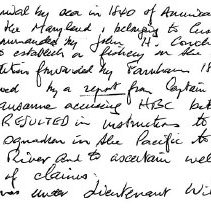 by sea in 1840 of American
the Maryland, belonging to Cus
commanded by John H. Couch
to establish a fishery in the
forwarded by Farnham 18
by a report from Captain
accusing HBC bet
RESULTED in instructions to
squadron in the Pacific to
River and to ascertain wel
of claims.
under Lieutenant Wi